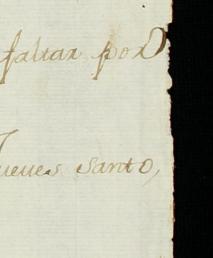 faltar por
Jueves Santo,